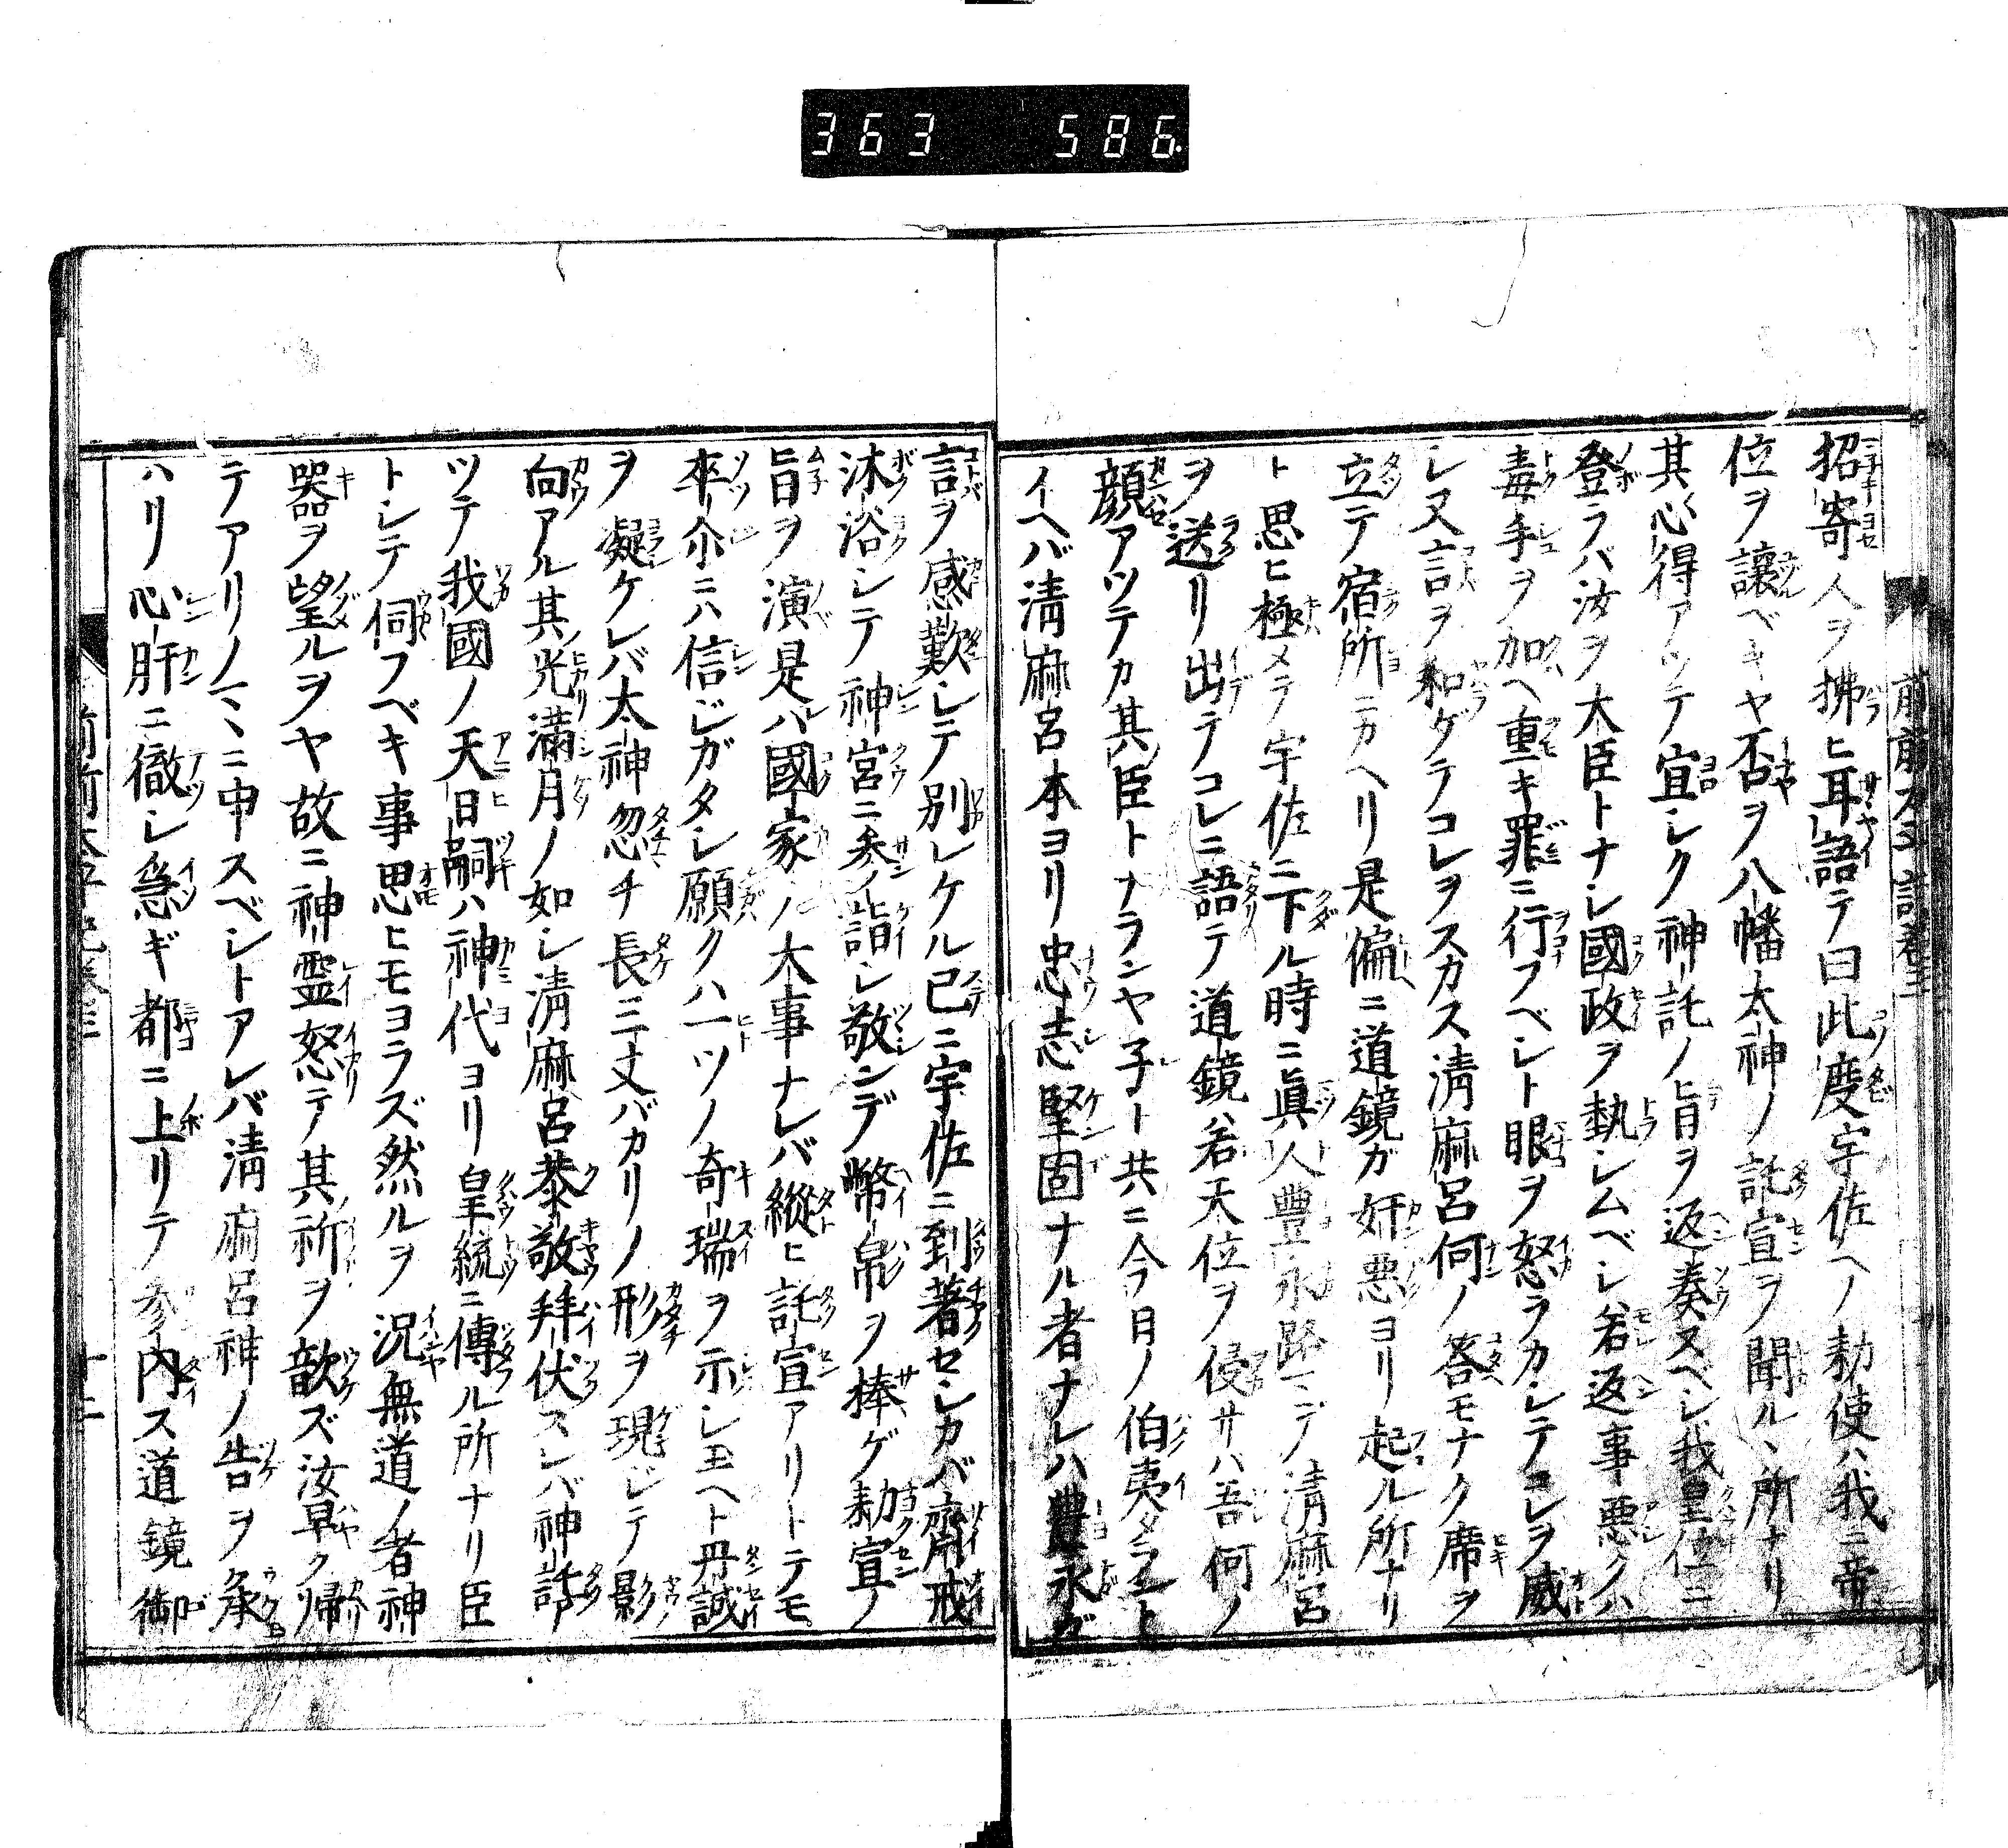 363 586
前前太平記卷三
招寄人ヲ拂ヒ耳語テ曰此度宇佐ヘノ勅使ハ我ニ帝
位ヲ讓ベキヤ否ヲ八幡太神ノ託宣ヲ聞ル、所ナリ
其心得アツテ宜シク神託ノ旨ヲ返奏スベシ我皇位ニ
登ラバ汝ヲ大臣トナシ國政ヲ執シムベシ若返事悪クハ
毒手ヲ加ヘ重キ罪ニ行フベシト眼ヲ怒ラカシテコレヲ威
シ又言ヲ和ゲテコレヲスカス淸麻呂何ノ答モナク席ヲ
立テ宿所ニカヘリ是偏ニ道鏡ガ奸悪ヨリ起ル所ナリ
ト思ヒ極メテ宇佐ニ下ル時ニ眞人豊永路ニデ淸麻呂
ヲ送リ出テコレニ語テ道鏡若天位ヲ侵サバ吾何ノ
顔アツテカ其臣トナランヤ子ト共ニ今日ノ伯夷タラント
イヘバ淸麻呂本ヨリ忠志堅固ナル者ナレハ豊永ガ
言ヲ感歎シテ別レケル已ニ宇佐ニ到著セシカバ齋戒
沐浴シテ神宮ニ参詣シ敬ンデ幣帛ヲ捧ゲ勅宣ノ
旨ヲ演是ハ國家ノ大事ナレバ縱ヒ託宣アリトテモ
卒尒ニハ信ジガタシ願クハ一ツノ奇瑞ヲ示シ玉ヘト丹誠
ヲ凝ケレバ太神忽チ長三丈バカリノ形ヲ現ジテ影
向アル其光滿月ノ如シ淸麻呂恭敬拜伏スレバ神託ア
ツテ我國ノ天日嗣ハ神代ヨリ皇統ニ傳ル所ナリ臣
トシテ伺フベキ事思ヒモヨラズ然ルヲ況無道ノ者神
器ヲ望ルヲヤ故ニ神霊怒テ其祈ヲ歆ズ汝早ク帰
テアリノマヽニ申スベシトアレバ淸麻呂神ノ告ヲ承
ハリ心肝ニ徹シ急ギ都ニ上リテ参内ス道鏡御
前前太平記卷三
十二